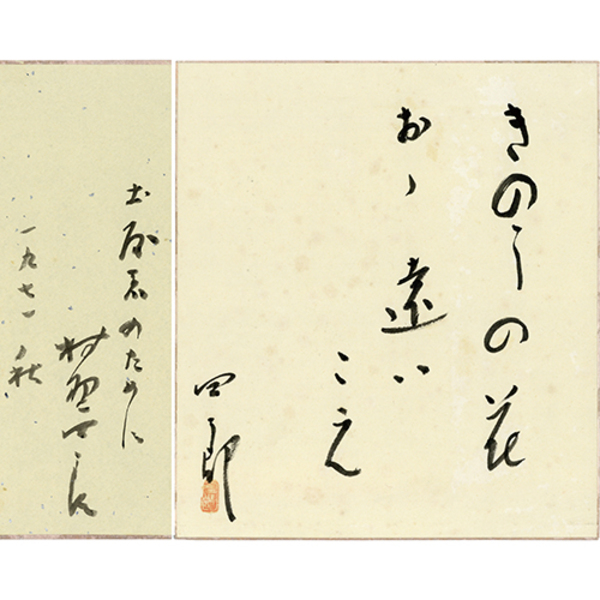 きのうの花
おゝ 遠い
こえ
四郎
土屋君のために
村野四郎
一九七一 秋